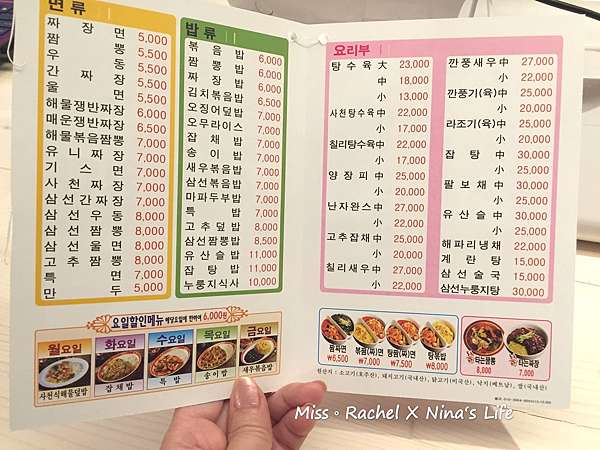 면 류
짜 장 면 5,000
짬 뽕 5,500
우 동 5,500
간 짜 장 5,500
울 면 5,500
해물쟁반짜장 6,500
매운쟁반짜장 6,500
해물볶음짬뽕 7,000
유 니 짜 장 7,000
기 스 면 7,000
사 천 짜 장 7,000
삼선간짜장 7,000
삼 선 우 동 8,000
삼 선 짬 뽕 8,000
삼 선 울 면 8,000
고 추 짬 뽕 8,000
특 면 7,000
만 두 5,000
밥 류
볶 음 밥 6,000
짬 뽕 밥 6,000
짜 장 밥 6,000
김치볶음밥 6,500
오징어덮밥 7,000
오므라이스 7,000
잡 채 밥 7,000
송 이 밥 7,000
새우볶음밥 7,000
삼선볶음밥 7,000
마파두부밥 7,000
특 밥 7,000
고 추 덮 밥 8,000
삼선짬뽕밥 8,500
유 산 슬 밥 11,000
잡 탕 밥 11,000
누룽지식사 10,000
요일할인메뉴 해당요일에 한하여 6,000원
월요일 화요일 수요일 목요일 금요일
사천식해물덮밥 잡채밥 특 밥 송이밥 새우볶음밥
요리부
탕 수 육 大 23,000
中 18,000
小 13,000
사천탕수육 中 22,000
小 17,000
칠리탕수육 中 22,000
小 17,000
양 장 피 中 25,000
小 20,000
난자완스 中 27,000
小 22,000
고추잡채 中 25,000
小 20,000
칠리새우 中 27,000
小 22,000
깐풍새우 中 27,000
小 22,000
깐풍기(육) 中 25,000
小 20,000
라조기(육) 中 25,000
小 20,000
잡 탕 中 30,000
小 25,000
팔 보 채 中 30,000
小 25,000
유 산 슬 中 30,000
小 25,000
해파리냉채 22,000
계 란 탕 15,000
삼 선 술 국 15,000
삼선누룽지탕 30,000
짬짜면 ₩6,500
볶짬(짜)면 ₩7,000
탕짬(짜)면 ₩7,500
탕볶밥 ₩8,000
타는짬뽕 8,000
타는짜장 7,000
원산지 : 소고기(호주산), 돼지고기(국내산), 닭고기(미국산), 낙지(베트남), 쌀(국내산)
Miss。Rachel X Nina's Life